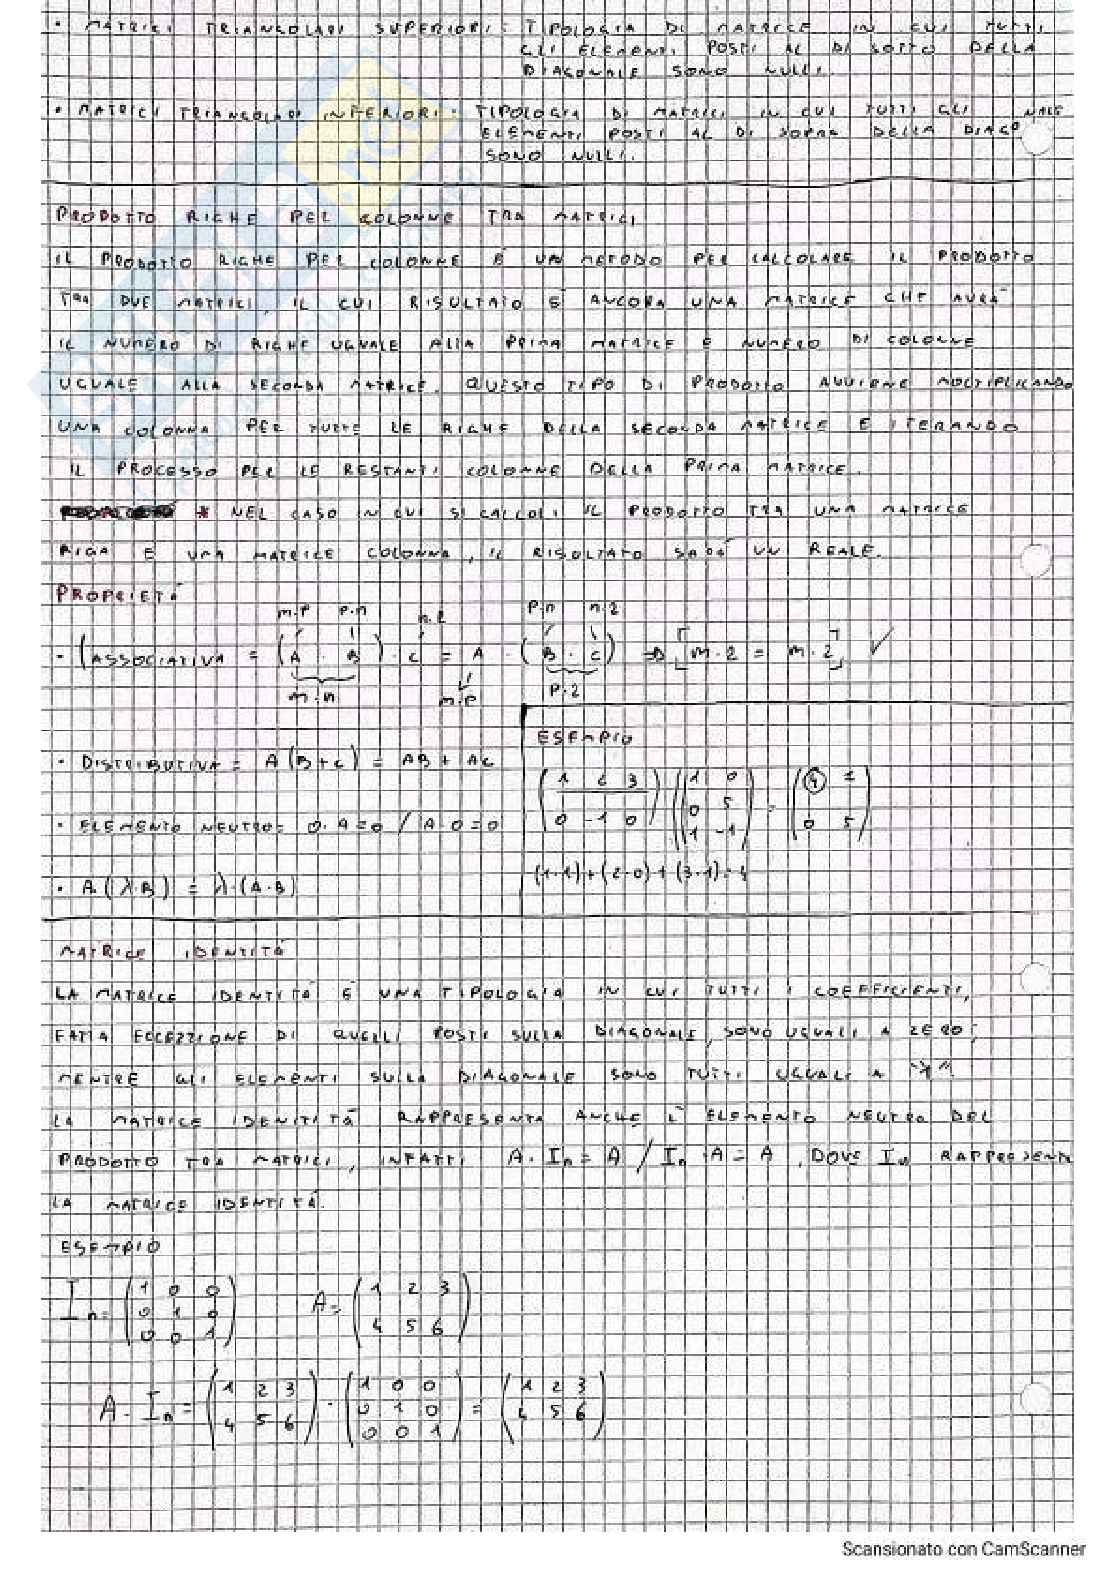 • MATRICI TRIANGOLARI SUPERIORI: TIPOLOGIA DI MATRICE IN CUI TUTTI
GLI ELEMENTI POSTI AL DI SOTTO DELLA
DIAGONALE SONO NULLI.
• MATRICI TRIANGOLARI INFERIORI: TIPOLOGIA DI MATRICI IN CUI TUTTI GLI
ELEMENTI POSTI AL DI SOPRA DELLA DIAGONALE
SONO NULLI.
PRODOTTO RIGHE PER COLONNE TRA MATRICI
IL PRODOTTO RIGHE PER COLONNE È UN METODO PER CALCOLARE IL PRODOTTO
TRA DUE MATRICI, IL CUI RISULTATO È ANCORA UNA MATRICE CHE AVRÀ
IL NUMERO DI RIGHE UGUALE ALLA PRIMA MATRICE E NUMERO DI COLONNE
UGUALE ALLA SECONDA MATRICE. QUESTO TIPO DI PRODOTTO AVVIENE MOLTIPLICANDO
UNA COLONNA PER TUTTE LE RIGHE DELLA SECONDA MATRICE E ITERANDO
IL PROCESSO PER LE RESTANTI COLONNE DELLA PRIMA MATRICE.
* NEL CASO IN CUI SI CALCOLI IL PRODOTTO TRA UNA MATRICE
RIGA E UNA MATRICE COLONNA, IL RISULTATO SARÀ UN REALE.
PROPRIETÀ
m.p p.n n.2 p.n n.2
• (ASSOCIATIVA = (A · B) · C = A · (B · C) ⇒ [m.2 = m.2] ✓
m.n m.p p.2
• DISTRIBUTIVA = A (B+C) = AB + AC
• ELEMENTO NEUTRO = 0·A=0 / A·0=0
• A·(λ·B) = λ·(A·B)
ESEMPIO
(1 2 3) (1 0) (4 2
0 5
0 -1 0) 1 -1) = 0 5)
(1·1)+(2·0)+(3·1)=4
MATRICE IDENTITÀ
LA MATRICE IDENTITÀ È UNA TIPOLOGIA IN CUI TUTTI I COEFFICIENTI,
FATTA ECCEZZIONE DI QUELLI POSTI SULLA DIAGONALE, SONO UGUALI A ZERO;
MENTRE GLI ELEMENTI SULLA DIAGONALE SONO TUTTI UGUALI A "1"
LA MATRICE IDENTITÀ RAPPRESENTA ANCHE L'ELEMENTO NEUTRO DEL
PRODOTTO TRA MATRICI, INFATTI A·In = A / In·A = A, DOVE In RAPPRESENTA
LA MATRICE IDENTITÀ.
ESEMPIO
In = (1 0 0
0 1 0
0 0 1)
A = (1 2 3
4 5 6)
A · In = (1 2 3 · (1 0 0 = (1 2 3
4 5 6) 0 1 0 4 5 6)
0 0 1)
Scansionato con CamScanner